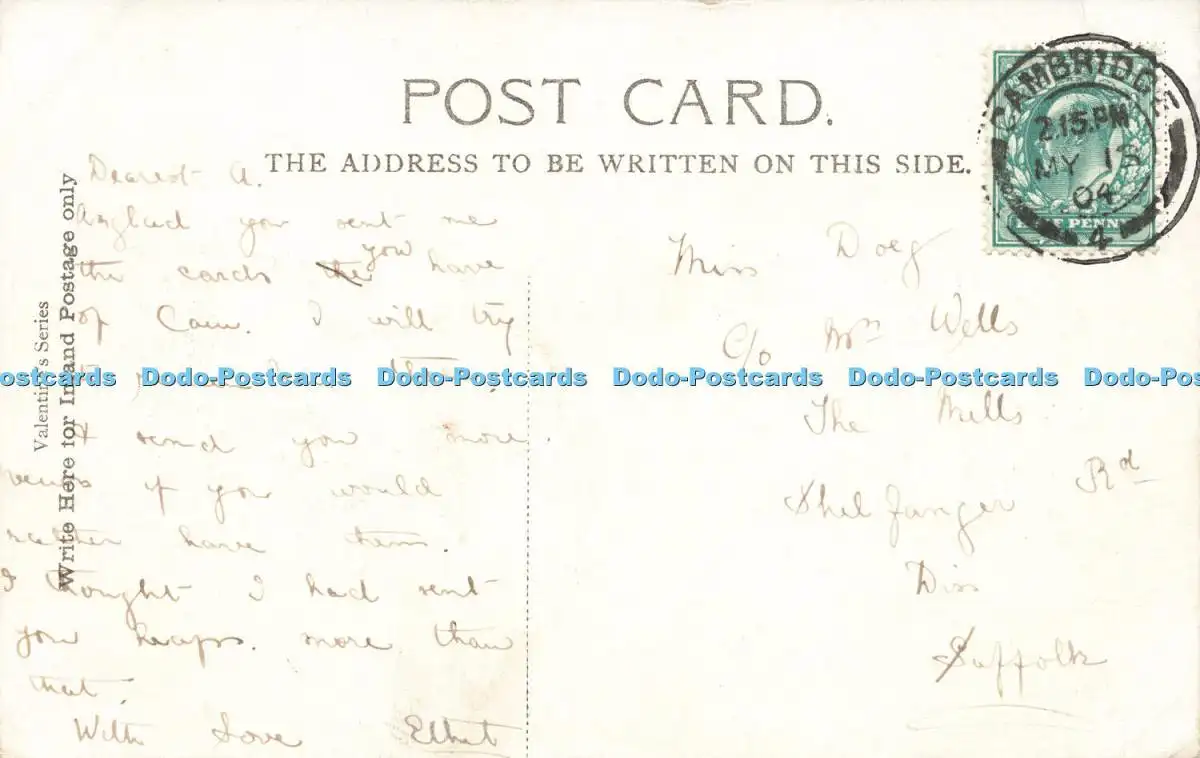 POST CARD.
THE ADDRESS TO BE WRITTEN ON THIS SIDE.
CAMBRIDGE
2.15.PM
MY 13
04
4
HALF PENNY
Valentine's Series
Write Here for Inland Postage only
Dearest A.
you sent me
the cards the you have
of Cam. I will try
& send you more
views if you would
rather have them.
I thought I had sent
you heaps. more than
that.
With Love
Miss Doeg
C/o Mrs Wells
The Mills
Shelfanger Rd
Diss
Suffolk
Dodo-Postcards Dodo-Postcards Dodo-Postcards Dodo-Postcards Dodo-Postcards Dodo-Postcards